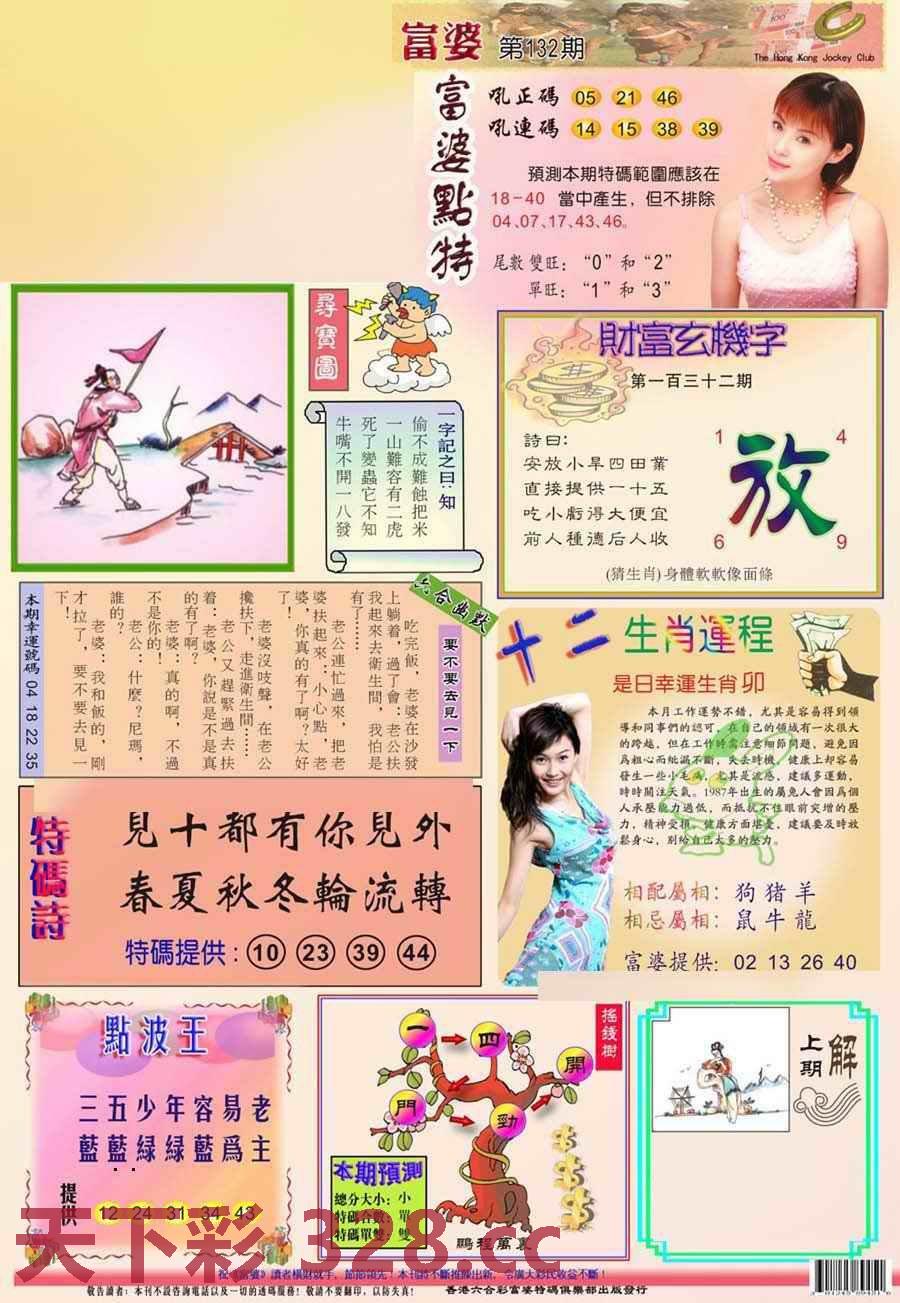 富婆 第132期
The Hong Kong Jockey Club
富婆點特
吼正碼 05 21 46
吼連碼 14 15 38 39
預測本期特碼範圍應該在
18-40 當中產生，但不排除
04、07、17、43、46。
尾數雙旺：“0”和“2”
單旺：“1”和“3”
尋寶圖
一字記之曰：知
偷不成難蝕把米
一山難容有二虎
死了變蟲它不知
牛嘴不開一八發
財富玄機字
第一百三十二期
詩曰：
安放小早四田業
直接提供一十五
吃小虧得大便宜
前人種德后人收
1 4
放
6 9
(猜生肖)身體軟軟像面條
六合幽默
要不要去見一下
吃完飯，老婆在沙發
上躺着，過了會：老公扶
我起來去衛生間，我怕是
有了……
老公連忙過來，把老
婆扶起來：小心點，老
婆，你真的有了啊？太好
了！
老婆沒吱聲，在老公
攙扶下，走進衛生間……
老公又趕緊過去扶
着：老婆，你說是不是真
的有了啊？
老婆：真的啊，不過
不是你的！
老公：什麼？尼瑪，
誰的？
老婆：我和飯的，剛
才拉了，要不要去見一
下！
本期幸運號碼 04 18 22 35
十二生肖運程
是日幸運生肖卯
本月工作運勢不錯，尤其是容易得到領
導和同事們的認可，在自己的領域有一次很大
的跨越，但在工作時需注意細節問題，避免因
為粗心而紕漏不斷，失去時機，健康上却容易
發生一些小毛病，尤其是流感，建議多運動，
時時關注天氣。1987年出生的屬兔人會因爲個
人承壓能力過低，而抵抗不住眼前突增的壓
力，精神受損，健康方面堪憂，建議要及時放
鬆身心，别給自己太多的壓力。
相配屬相：狗豬羊
相忌屬相：鼠牛龍
富婆提供：02 13 26 40
特碼詩
見十都有你見外
春夏秋冬輪流轉
特碼提供：10 23 39 44
點波王
三五少年容易老
藍藍緑緑藍爲主
提供 12 24 31 34 43
搖錢樹
一 四 開
門 勁
本期預測
總分大小：小
特碼合數：單
特碼單雙：雙
鵬程萬裏
上期解
天下彩 328.cc
祝《富婆》讀者橫財就手，節節領先！本刊將不斷推陳出新，令廣大彩民收益不斷！
敬告讀者：本刊不設咨詢電話以及一切的透碼服務！敬請不要翻印，以防失真！ 香港六合彩富婆特碼俱樂部出版發行